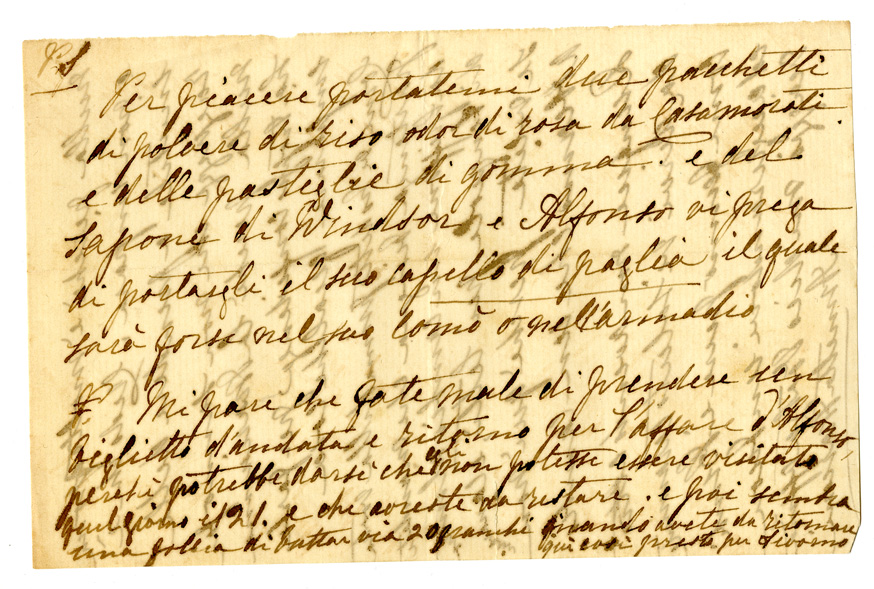 P.S
Per piacere portatemi due pacchetti
di polvere di riso odor di rosa da Casamorati
e delle pastiglie di gomma. e del
sapone di Windsor e Alfonso vi prega
di portargli il suo capello di paglia il quale
sarà forse nel suo comò o nell'armadio
Mi pare che fate male di prendere un
biglietto d'andata e ritorno per l'affare d'Alfonso,
perchè potrebbe darsi che egli non potesse essere visitato
quel giorno il 21. e che avreste da restare. e poi sembra
una follia di buttar via 20 franchi quando avete da ritornare
qui così presto per Livorno